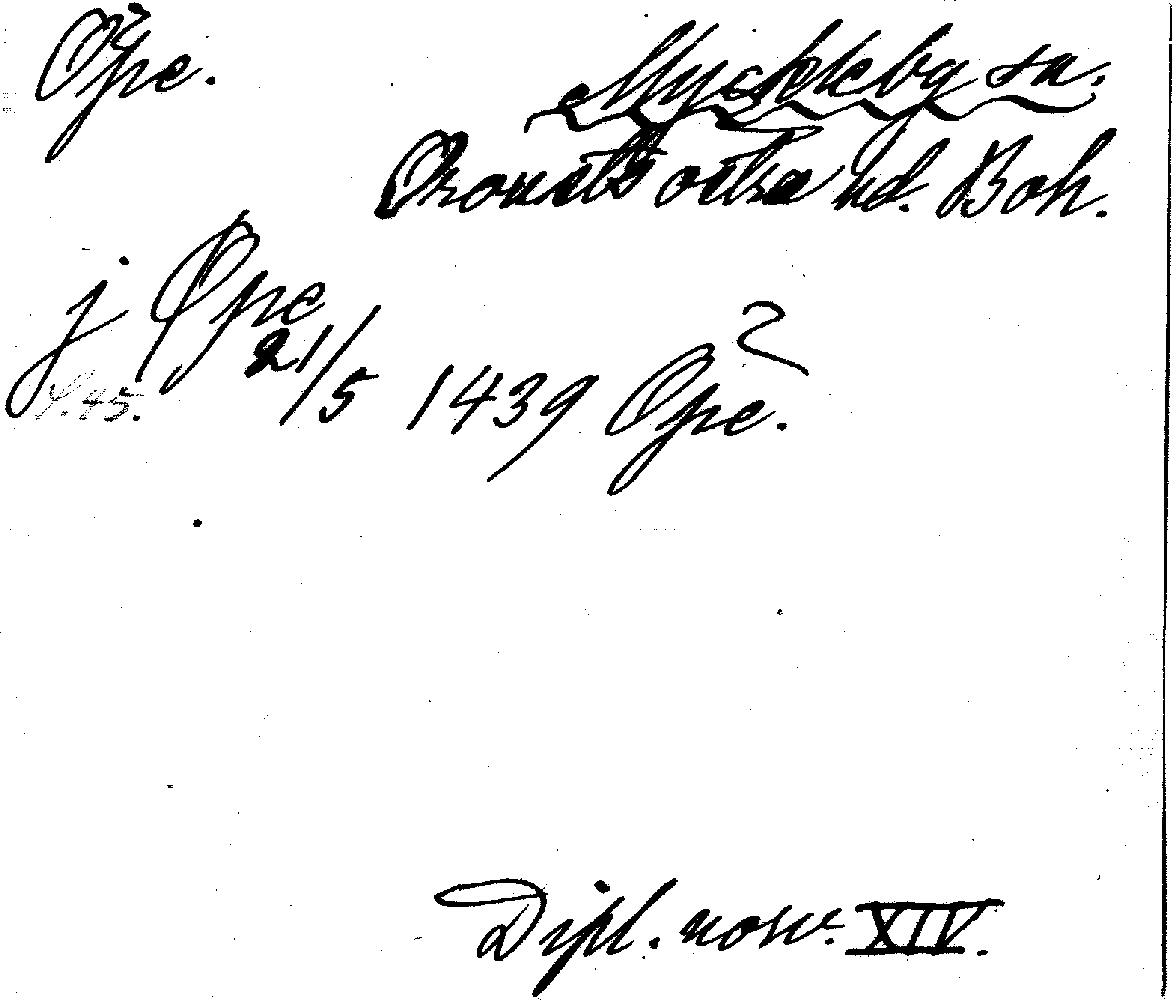 Öpe.
Myckleby sn.
Orousts östra hd. Boh.
j Øpe
21/5 1439 Öpe.
s. 45.
Dipl. norv. XIV.